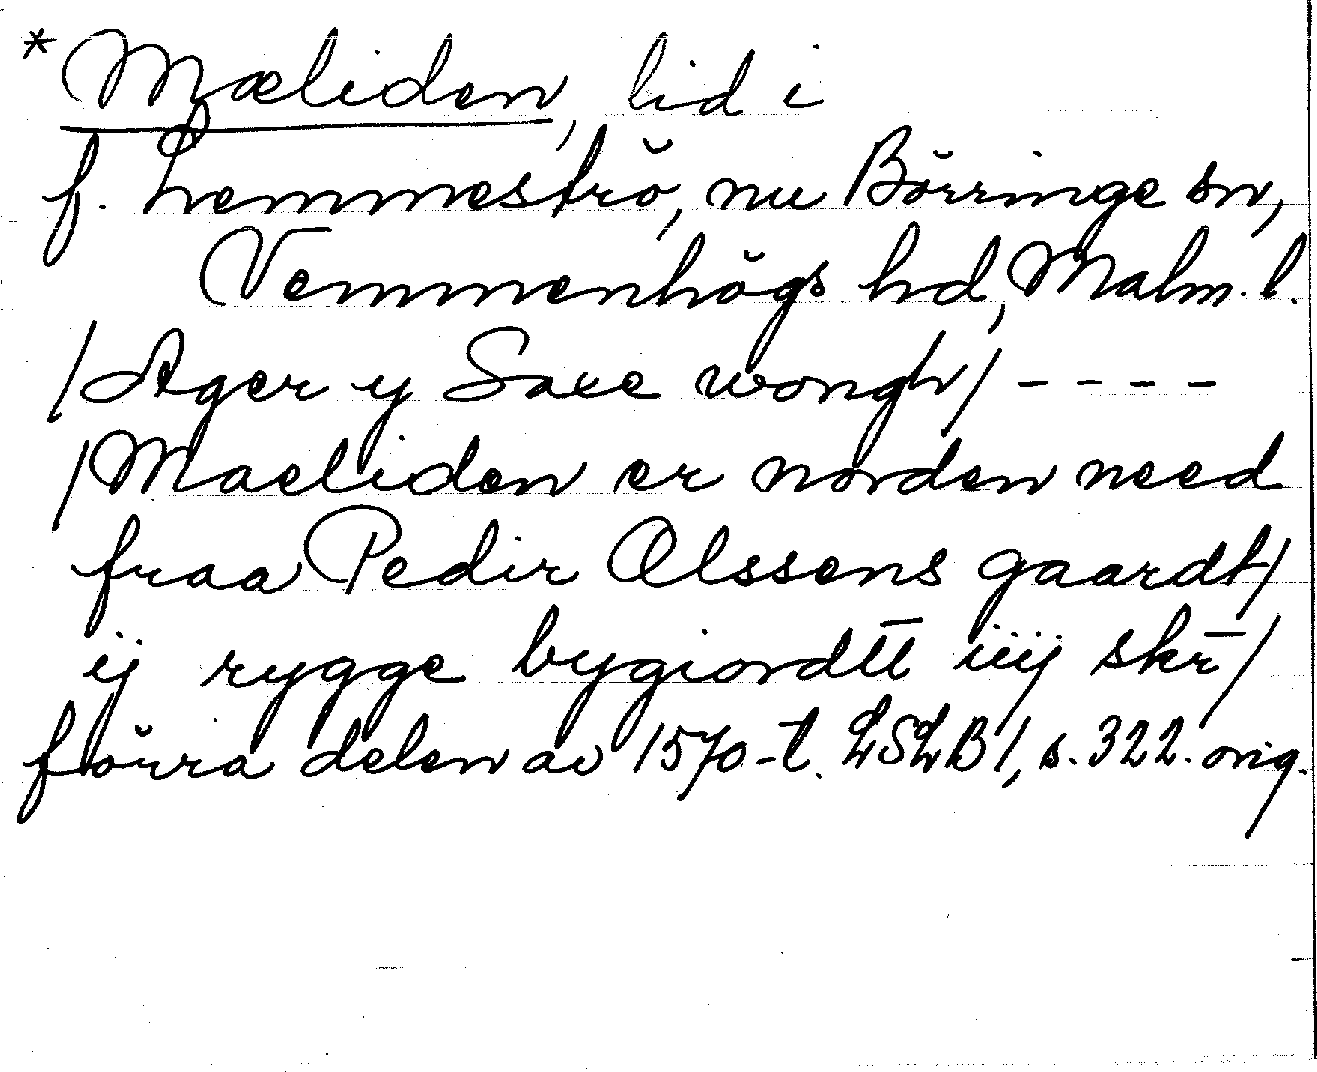 *Mæliden, lid i
f. Lemmeströ, nu Börringe sn,
Vemmenhögs hd, Malm. l.
/Ager y Saxe wongh/ - - - -
/Maeliden er norden need
fraa Pedir Olssens gaardt/
ij rygge bygiordtt iiij skr̄/
förra delen av 1570-t. LSLB 1, s. 322. orig.